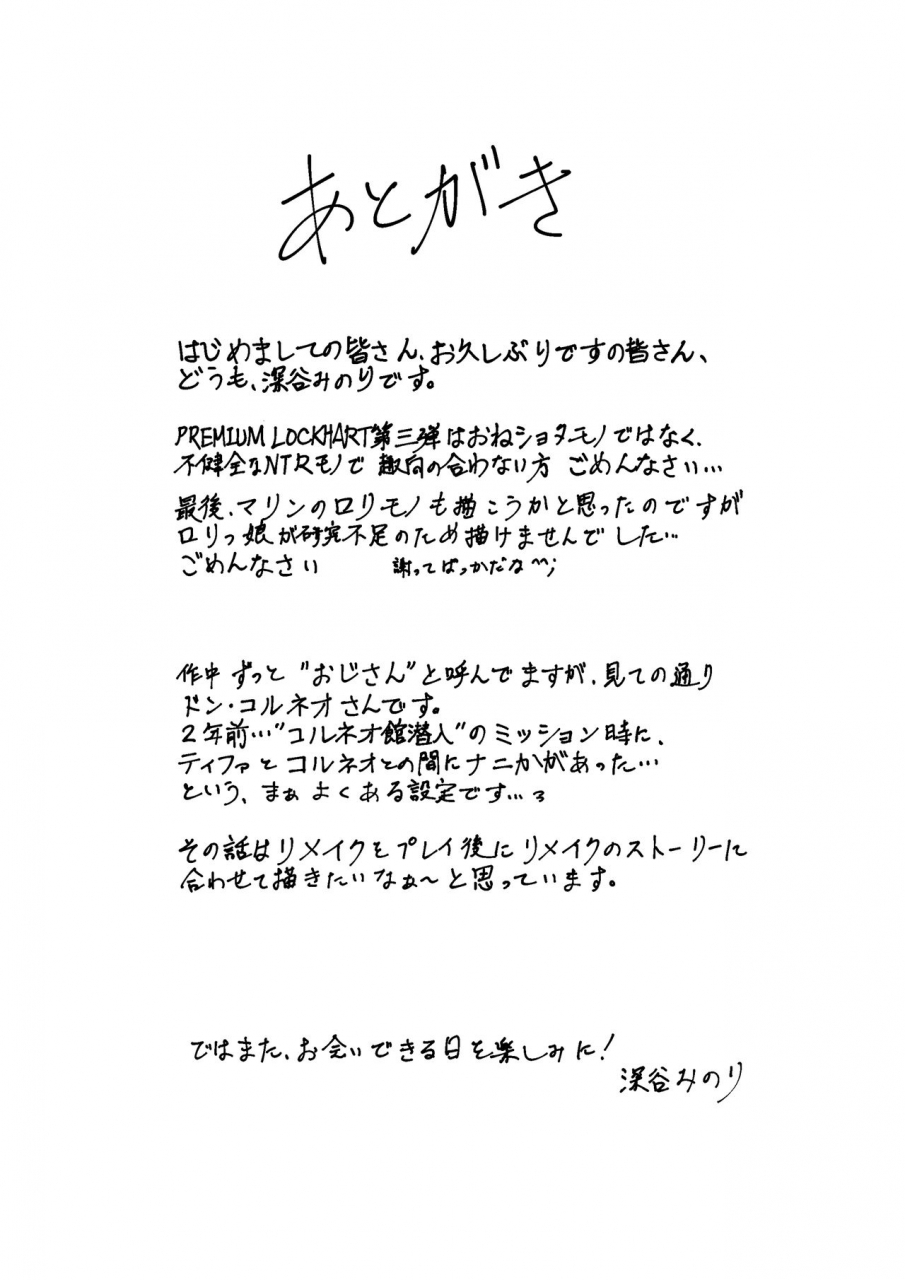 あとがき
はじめましての皆さん、お久しぶりですの皆さん、
どうも、深谷みのりです。
PREMIUM LOCKHART第三弾はおねショタモノではなく、
不健全なNTRモノで 趣向の合わない方 ごめんなさい…
最後、マリンのロリモノも描こうかと思ったのですが
ロリっ娘が研究不足のため描けませんでした…
ごめんなさい 謝ってばっかだな^^;
作中 ずっと "おじさん"と呼んでますが、見ての通り
ドン・コルネオさんです。
2年前…"コルネオ館潜入"のミッション時に、
ティファとコルネオとの間にナニかがあった…
という、まぁ よくある設定です…っ
その話はリメイクをプレイ後にリメイクのストーリーに
合わせて描きたいなぁ〜と思っています。
ではまた、お会いできる日を楽しみに!
深谷みのり